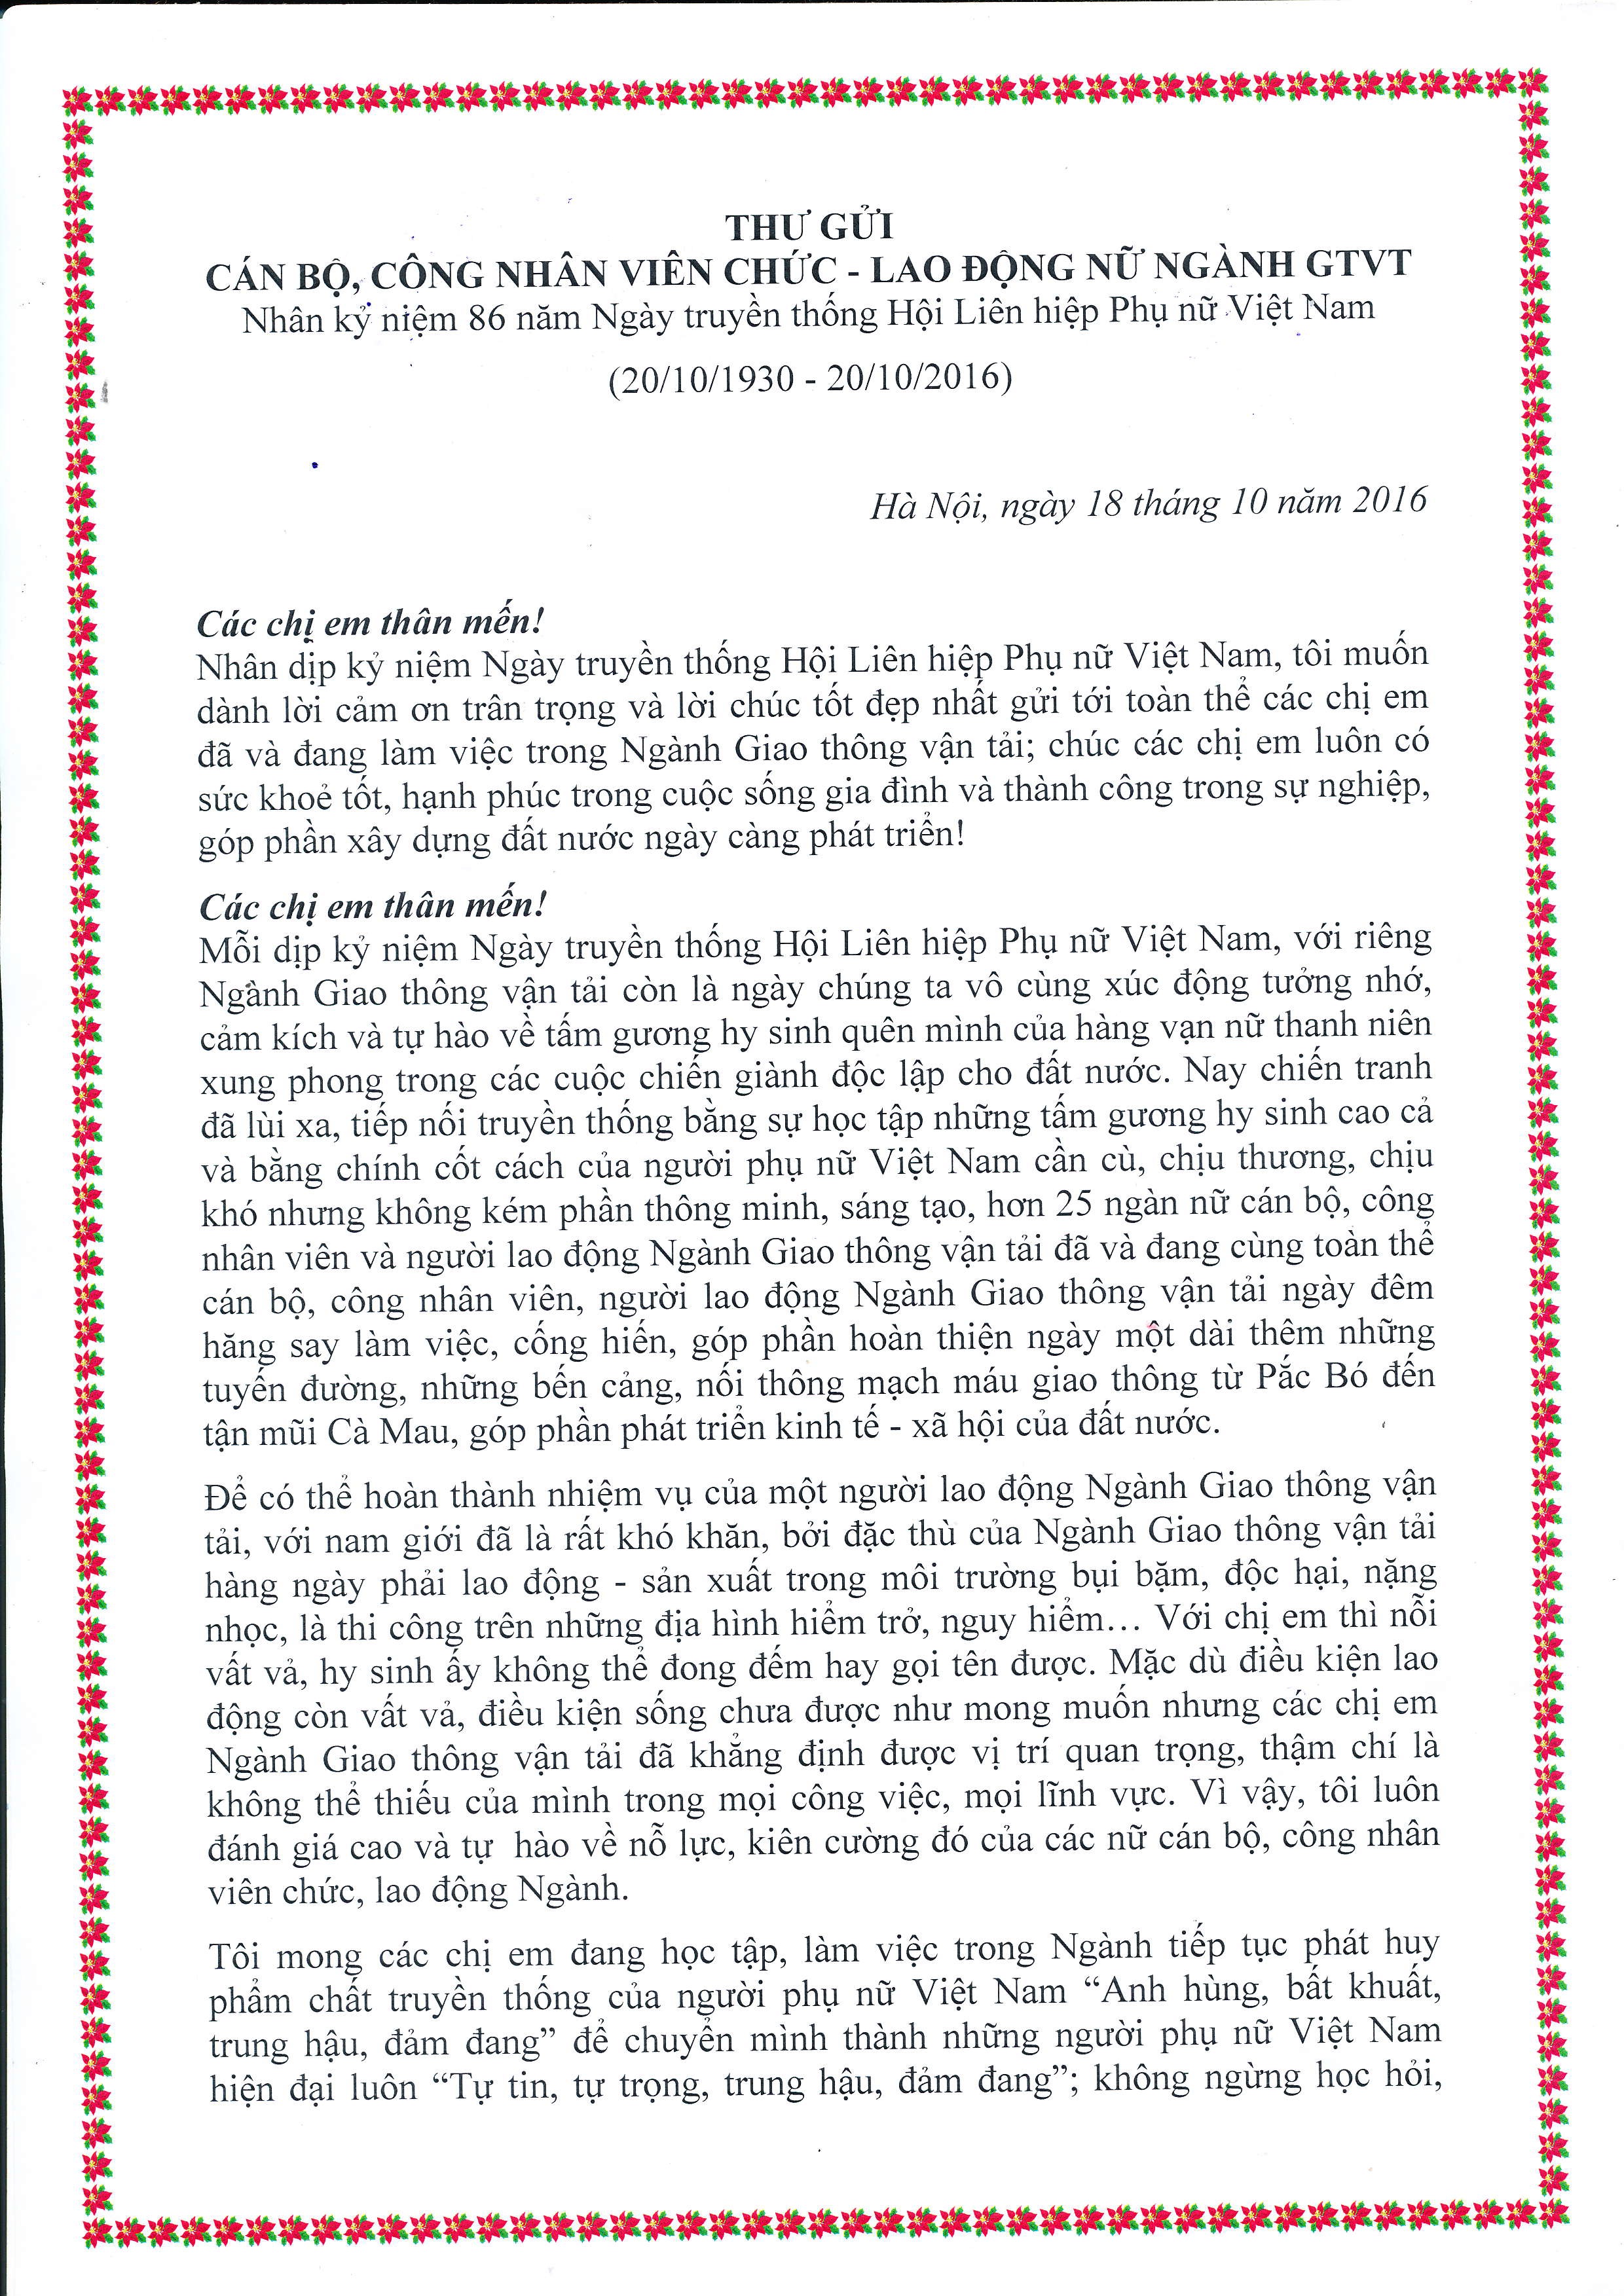 THƯ GỬI
CÁN BỘ, CÔNG NHÂN VIÊN CHỨC - LAO ĐỘNG NỮ NGÀNH GTVT
Nhân kỷ niệm 86 năm Ngày truyền thống Hội Liên hiệp Phụ nữ Việt Nam
(20/10/1930 - 20/10/2016)
Hà Nội, ngày 18 tháng 10 năm 2016
Các chị em thân mến!
Nhân dịp kỷ niệm Ngày truyền thống Hội Liên hiệp Phụ nữ Việt Nam, tôi muốn
dành lời cảm ơn trân trọng và lời chúc tốt đẹp nhất gửi tới toàn thể các chị em
đã và đang làm việc trong Ngành Giao thông vận tải; chúc các chị em luôn có
sức khoẻ tốt, hạnh phúc trong cuộc sống gia đình và thành công trong sự nghiệp,
góp phần xây dựng đất nước ngày càng phát triển!
Các chị em thân mến!
Mỗi dịp kỷ niệm Ngày truyền thống Hội Liên hiệp Phụ nữ Việt Nam, với riêng
Ngành Giao thông vận tải còn là ngày chúng ta vô cùng xúc động tưởng nhớ,
cảm kích và tự hào về tấm gương hy sinh quên mình của hàng vạn nữ thanh niên
xung phong trong các cuộc chiến giành độc lập cho đất nước. Nay chiến tranh
đã lùi xa, tiếp nối truyền thống bằng sự học tập những tấm gương hy sinh cao cả
và bằng chính cốt cách của người phụ nữ Việt Nam cần cù, chịu thương, chịu
khó nhưng không kém phần thông minh, sáng tạo, hơn 25 ngàn nữ cán bộ, công
nhân viên và người lao động Ngành Giao thông vận tải đã và đang cùng toàn thể
cán bộ, công nhân viên, người lao động Ngành Giao thông vận tải ngày đêm
hăng say làm việc, cống hiến, góp phần hoàn thiện ngày một dài thêm những
tuyến đường, những bến cảng, nối thông mạch máu giao thông từ Pắc Bó đến
tận mũi Cà Mau, góp phần phát triển kinh tế - xã hội của đất nước.
Để có thể hoàn thành nhiệm vụ của một người lao động Ngành Giao thông vận
tải, với nam giới đã là rất khó khăn, bởi đặc thù của Ngành Giao thông vận tải
hàng ngày phải lao động - sản xuất trong môi trường bụi bặm, độc hại, nặng
nhọc, là thi công trên những địa hình hiểm trở, nguy hiểm… Với chị em thì nỗi
vất vả, hy sinh ấy không thể đong đếm hay gọi tên được. Mặc dù điều kiện lao
động còn vất vả, điều kiện sống chưa được như mong muốn nhưng các chị em
Ngành Giao thông vận tải đã khẳng định được vị trí quan trọng, thậm chí là
không thể thiếu của mình trong mọi công việc, mọi lĩnh vực. Vì vậy, tôi luôn
đánh giá cao và tự hào về nỗ lực, kiên cường đó của các nữ cán bộ, công nhân
viên chức, lao động Ngành.
Tôi mong các chị em đang học tập, làm việc trong Ngành tiếp tục phát huy
phẩm chất truyền thống của người phụ nữ Việt Nam “Anh hùng, bất khuất,
trung hậu, đảm đang” để chuyển mình thành những người phụ nữ Việt Nam
hiện đại luôn “Tự tin, tự trọng, trung hậu, đảm đang”; không ngừng học hỏi,